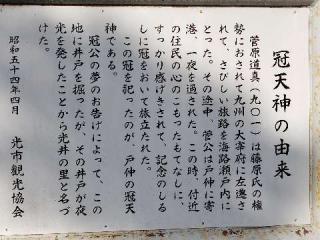 冠天神の由来
菅原道真(九〇一)は藤原氏の権
勢におされて九州の大宰府に左遷さ
れて、さびしい旅路を海路瀬戸内に
とった。その途中、菅公は戸仲に寄
港、一夜を過された。この時、付近
の住民の心のこもったもてなしに、
すっかり感げきされて、記念のしる
しに冠をおいて旅立たれた。
この冠を祀ったのが、戸仲の冠天
神である。
冠公の夢のお告げによって、この
地に井戸を掘ったが、その井戸が夜
光を発したことから光井の里と名づ
けた。
昭和五十四年四月
光市観光協会